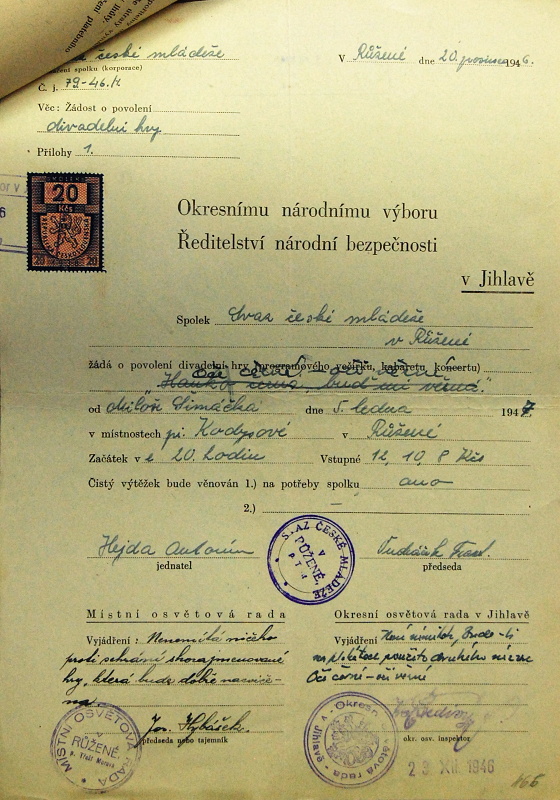 české mládeže
spolku (korporace)
V Růžené dne 20. prosince 1946.
Č. j. 79-46.K
Věc: Žádost o povolení
divadelní hry
Přílohy 1.
20
Kčs
REPUBLIKA ČESKOSLOVENSKÁ
20 20
Okresnímu národnímu výboru
Ředitelství národní bezpečnosti
v Jihlavě
Spolek Svaz české mládeže
v Růžené
žádá o povolení divadelní hry (programového večírku, kabaretu, koncertu)
Oči černé - oči věrné
buď mi věrná."
od Miloš Simáčka dne 5. ledna 1947
v místnostech pí. Kodysové v Růžené
Začátek v 20. hodin Vstupné 12, 10, 8 Kčs
Čistý výtěžek bude věnován 1.) na potřeby spolku ano
2.) —
Hejda Antonín
jednatel
předseda
SVAZ ČESKÉ MLÁDEŽE
V
RŮŽENÉ,
Místní osvětová rada
Vyjádření: Nenamítá ničeho
proti sehrání shorajmenované
hry, která bude dobře nacviče-
na
Jos. Hybášek
předseda nebo tajemník
MÍSTNÍ OSVĚTOVÁ RADA
V
RŮŽENÉ,
p. Třešť Morava
Okresní osvětová rada v Jihlavě
Vyjádření Není námitek, bude-li
na plakátech použito druhého názvu
Oči černé - oči věrné
okr. osv. inspektor
Okresní osvětová rada - Jihlava
23 XII. 1946